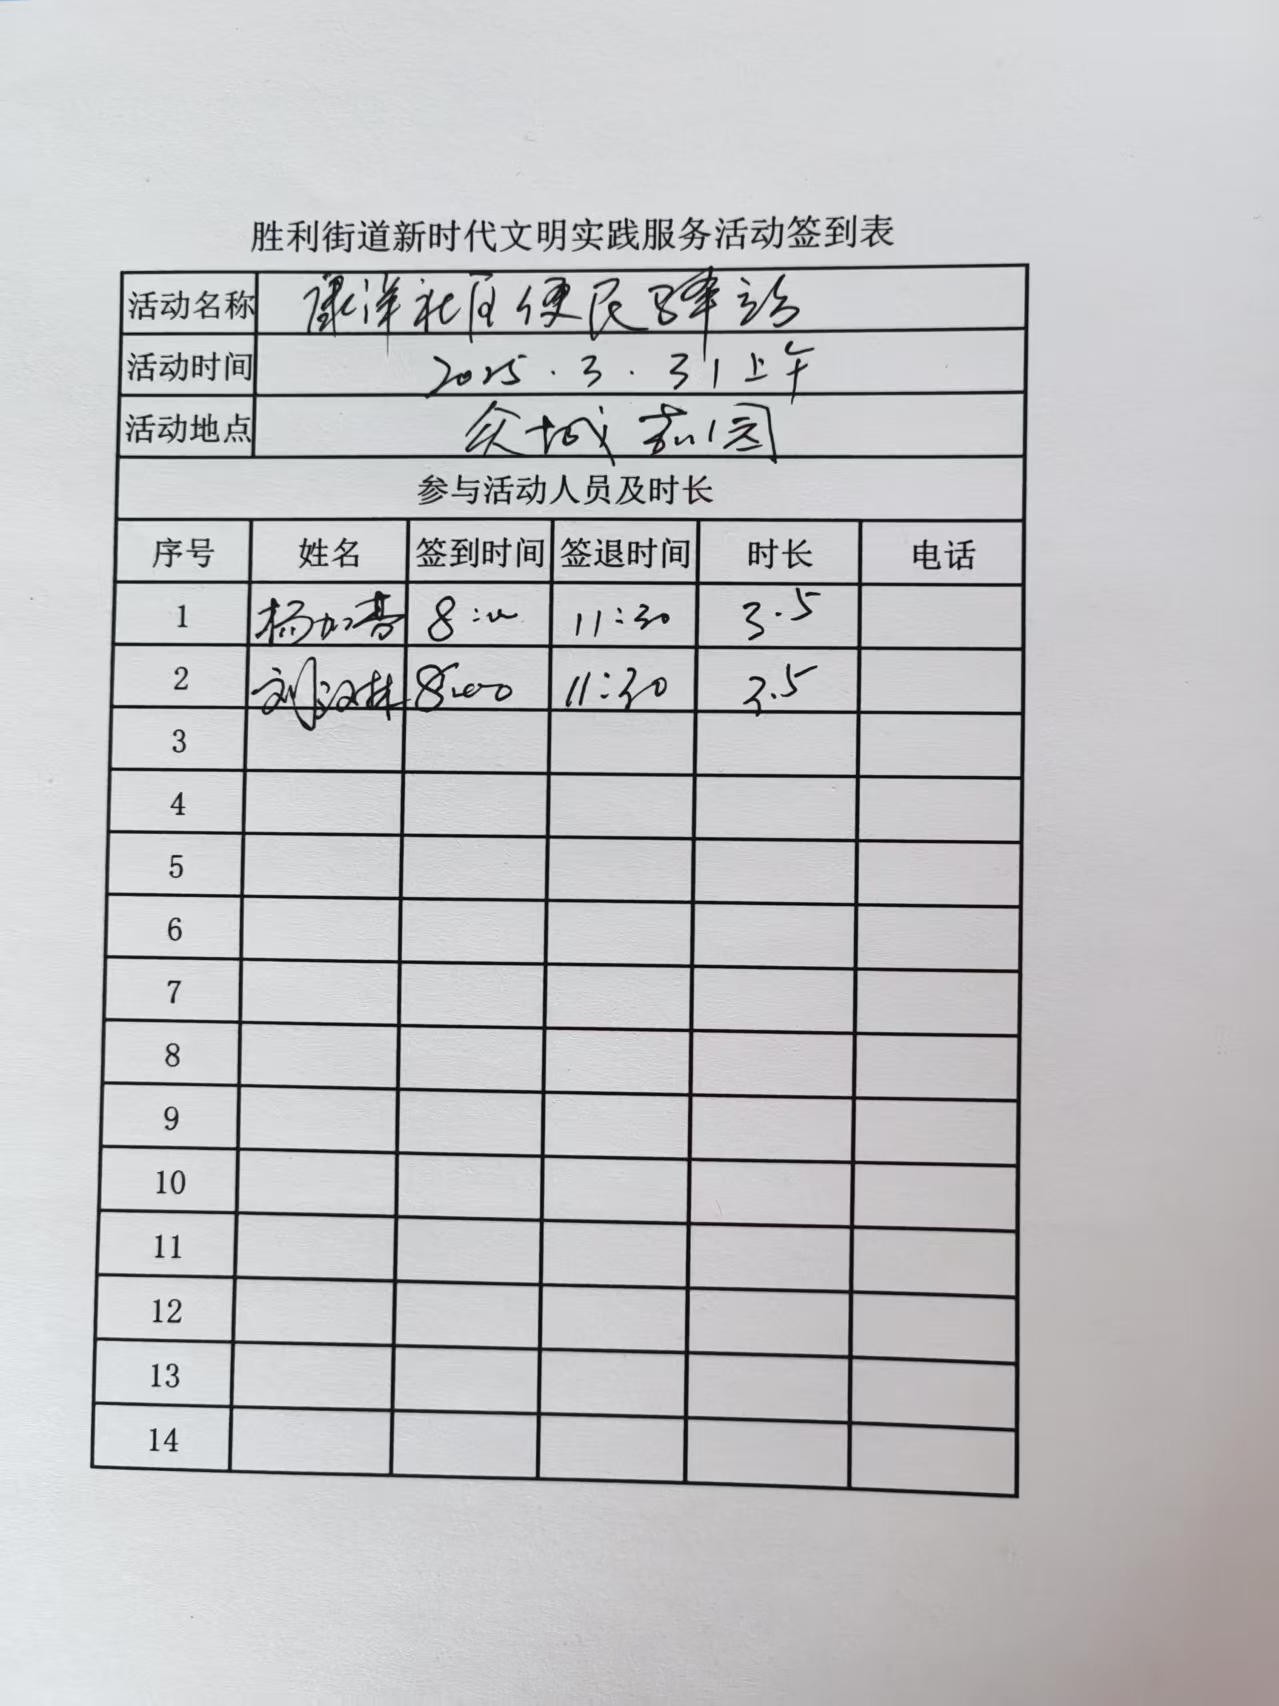 胜利街道新时代文明实践服务活动签到表
活动名称 康洋社区便民驿站
活动时间 2025.3.31上午
活动地点 众城 园
参与活动人员及时长
序号 姓名 签到时间 签退时间 时长 电话
1 杨 8:00 11:30 3.5
2 刘汉林 8:00 11:30 3.5
3
4
5
6
7
8
9
10
11
12
13
14